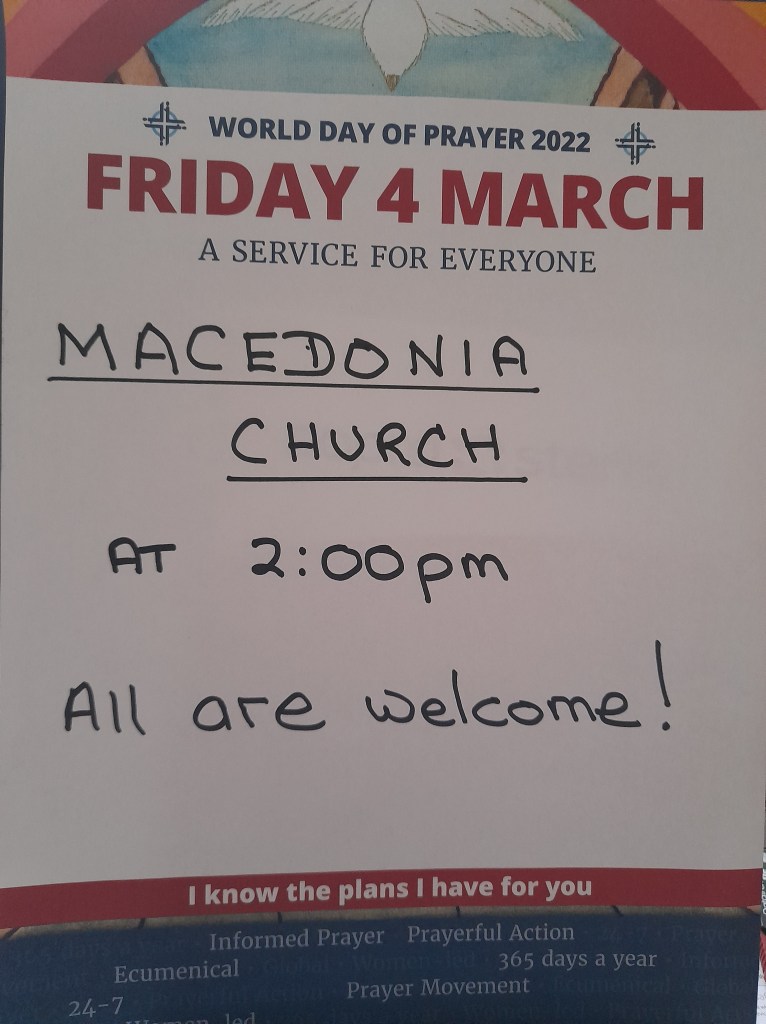 WORLD DAY OF PRAYER 2022
FRIDAY 4 MARCH
A SERVICE FOR EVERYONE
MACEDONIA
CHURCH
AT 2:00pm
All are welcome!
I know the plans I have for you
Informed Prayer Prayerful Action
Ecumenical 365 days a year
Prayer Movement
24-7
Women-led